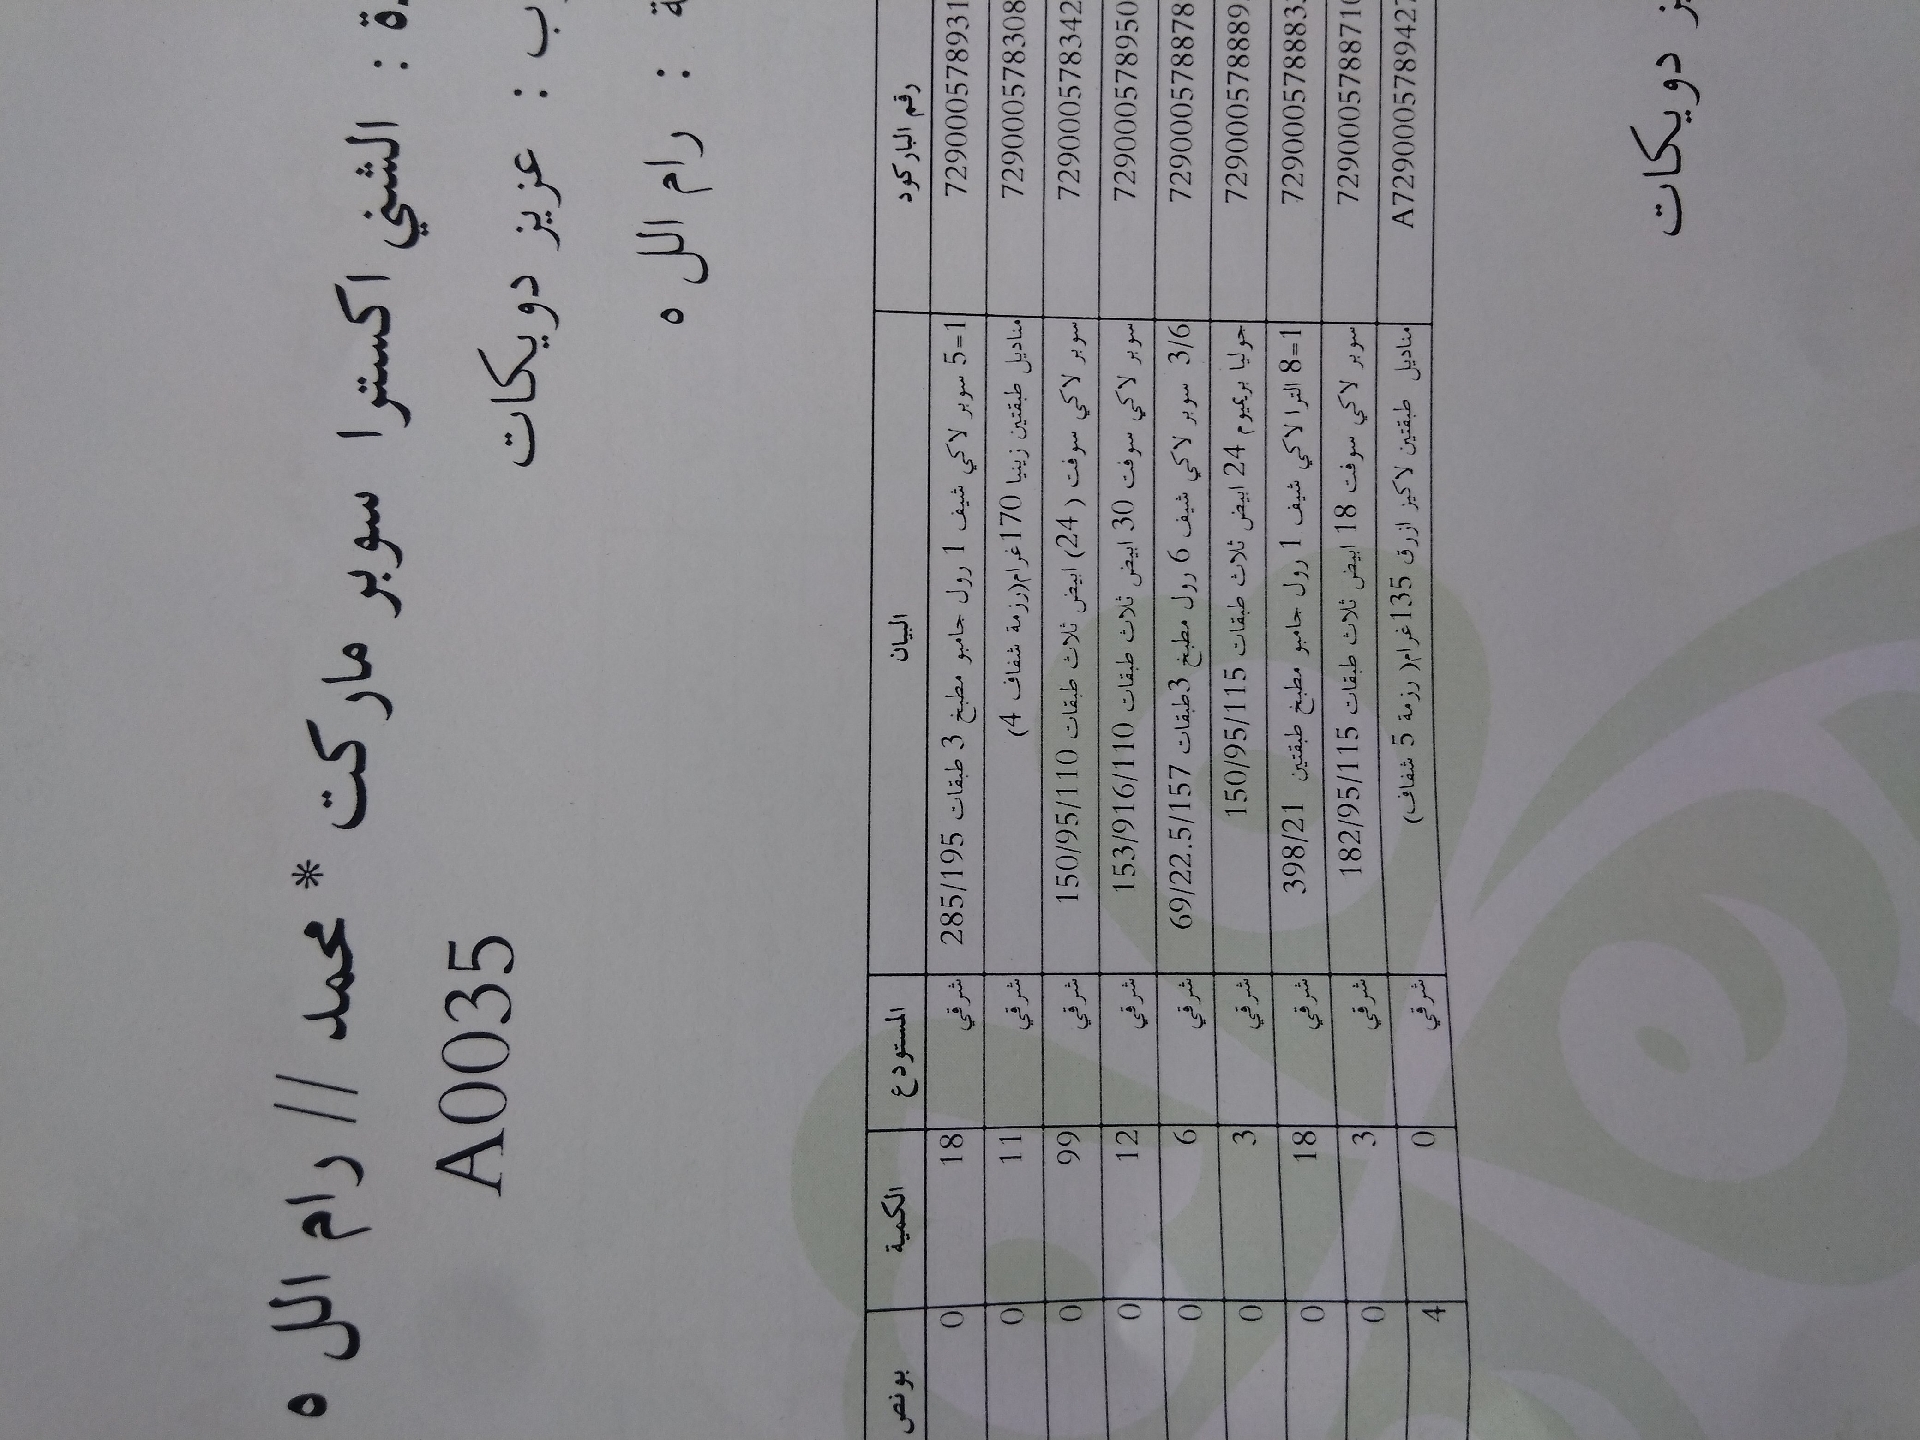 : الشني اكسترا سوبر ماركت * محمد // رام الل ه
: عزيز دويكات A0035
: رام الل ه
رقم الباركود البيان المستودع الكمية بونص
7290005789931 5=1 سوبر لاكي شيف 1 رول جامبو مطبخ 3 طبقات 285/195 شرقي 18 0
مناديل طبقتين زينيا 170غرام(رزمة شفاف 4) شرقي 11 0
سوبر لاكي سوفت (24) ابيض ثلاث طبقات 150/95/110 شرقي 99 0
سوبر لاكي سوفت 30 ابيض ثلاث طبقات 153/916/110 شرقي 12 0
3/6 سوبر لاكي شيف 6 رول مطبخ 3طبقات 69/22.5/157 شرقي 6 0
جوليا بريميوم 24 ابيض ثلاث طبقات 150/95/115 شرقي 3 0
8=1 الترا لاكي شيف 1 رول جامبو مطبخ طبقتين 398/21 شرقي 18 0
سوبر لاكي سوفت 18 ابيض ثلاث طبقات 182/95/115 شرقي 3 0
مناديل طبقتين لاكيز ازرق 135غرام( رزمة 5 شفاف) شرقي 0 4
دويكات